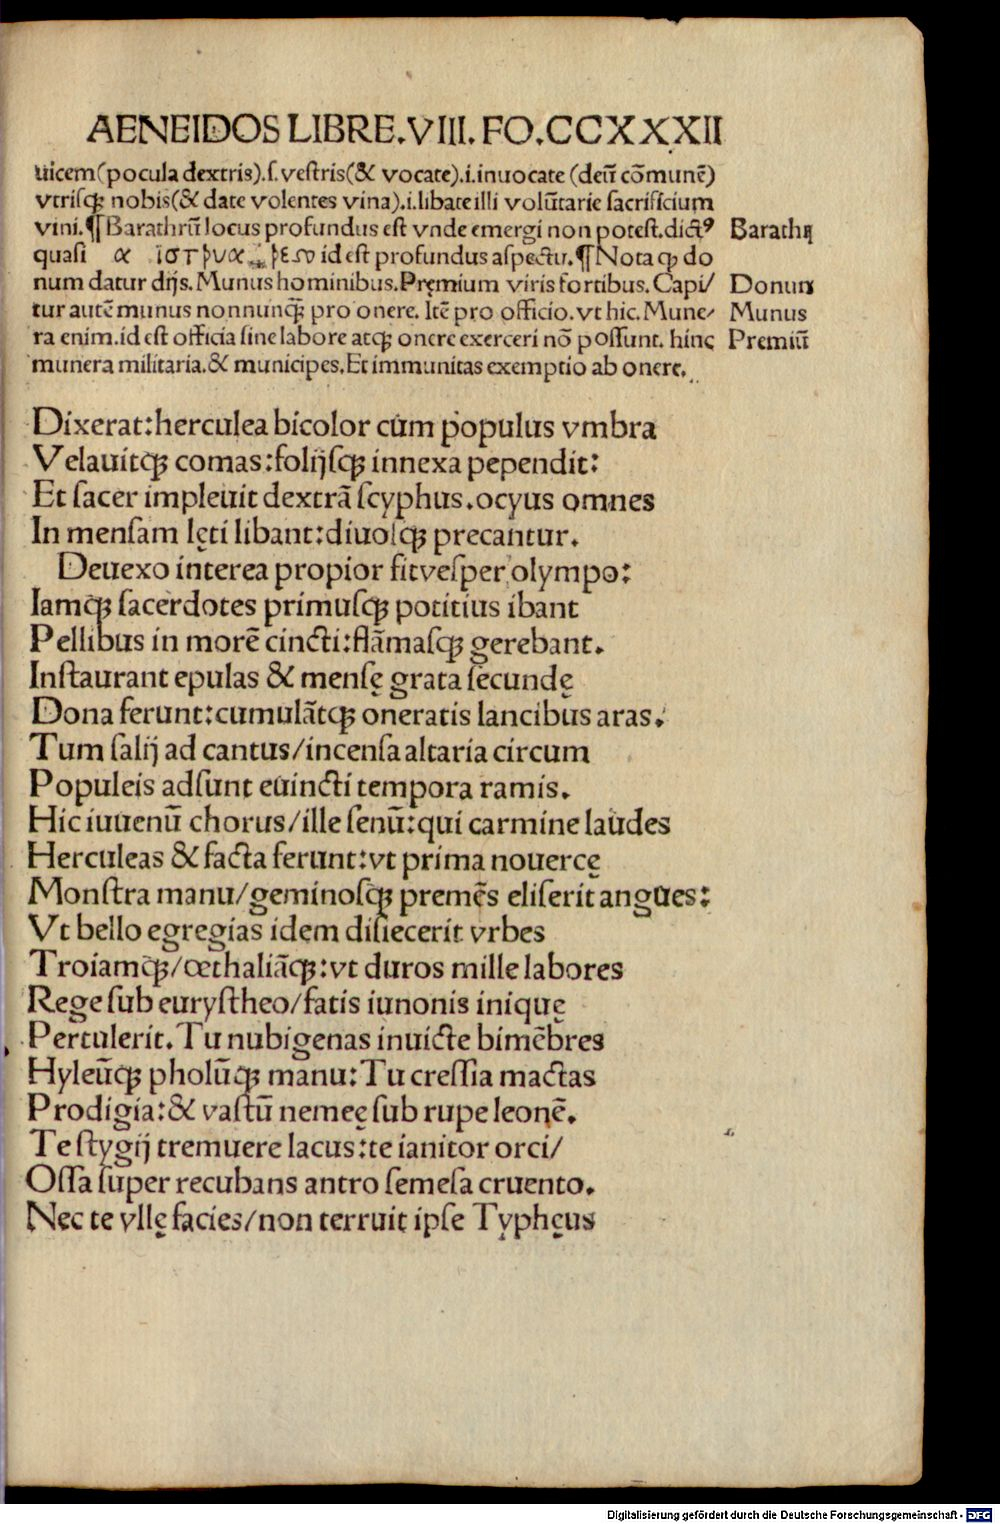 AENEIDOS LIBRE.VIII. FO.CCXXXII
uicem(pocula dextris).ſ.veſtris(& vocate).i.inuocate (deū cōmunē)
vtriſqꝫ nobis(& date volentes vina).i.libate illi volūtarie ſacrificium
vini.¶Barathrū locus profundus eſt vnde emergi non poteſt.dictꝰ Barathꝝ
quaſi id eſt profundus aſpectu.¶Nota ꝙ do
num datur dijs.Munus hominibus.Pręmium viris fortibus. Capi/ Donum
tur autē munus nonnunqꝫ pro onere. Itē pro officio.vt hic. Mune/ Munus
ra enim.id eſt officia ſine labore atqꝫ onere exerceri nō poſſunt. hinc Premiū
munera militaria.& municipes.Et immunitas exemptio ab onere.
Dixerat:herculea bicolor cum populus vmbra
Velauitqꝫ comas:folijſqꝫ innexa pependit:
Et ſacer impleuit dextrā ſcyphus.ocyus omnes
In menſam lęti libant:diuoſqꝫ precantur.
Deuexo interea propior fit veſper olympo:
Iamqꝫ ſacerdotes primuſqꝫ potitius ibant
Pellibus in morē cincti:flāmaſqꝫ gerebant.
Inſtaurant epulas & menſę grata ſecundę
Dona ferunt:cumulātqꝫ oneratis lancibus aras.
Tum ſalij ad cantus/incenſa altaria circum
Populeis adſunt euincti tempora ramis.
Hic iuuenū chorus/ille ſenū:qui carmine laudes
Herculeas & facta ferunt:vt prima nouercę
Monſtra manu/geminoſqꝫ premēs eliſerit angues:
Vt bello egregias idem diſiecerit vrbes
Troiamqꝫ/œthaliāqꝫ:vt duros mille labores
Rege ſub euryſtheo/fatis iunonis iniquę
Pertulerit.Tu nubigenas inuicte bimēbres
Hyleūqꝫ pholūqꝫ manu:Tu creſſia mactas
Prodigia:& vaſtū nemeę ſub rupe leonē.
Te ſtygij tremuere lacus:te ianitor orci/
Oſſa ſuper recubans antro ſemeſa cruento.
Nec te vllę facies/non terruit ipſe Typhęus
Digitalisierung gefördert durch die Deutsche Forschungsgemeinschaft - DFG